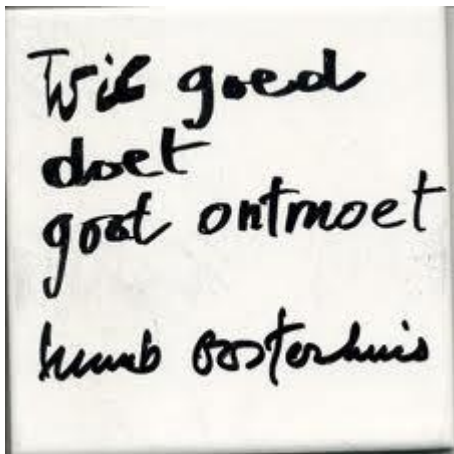 Wie goed
doet
goed ontmoet
huub oosterhuis